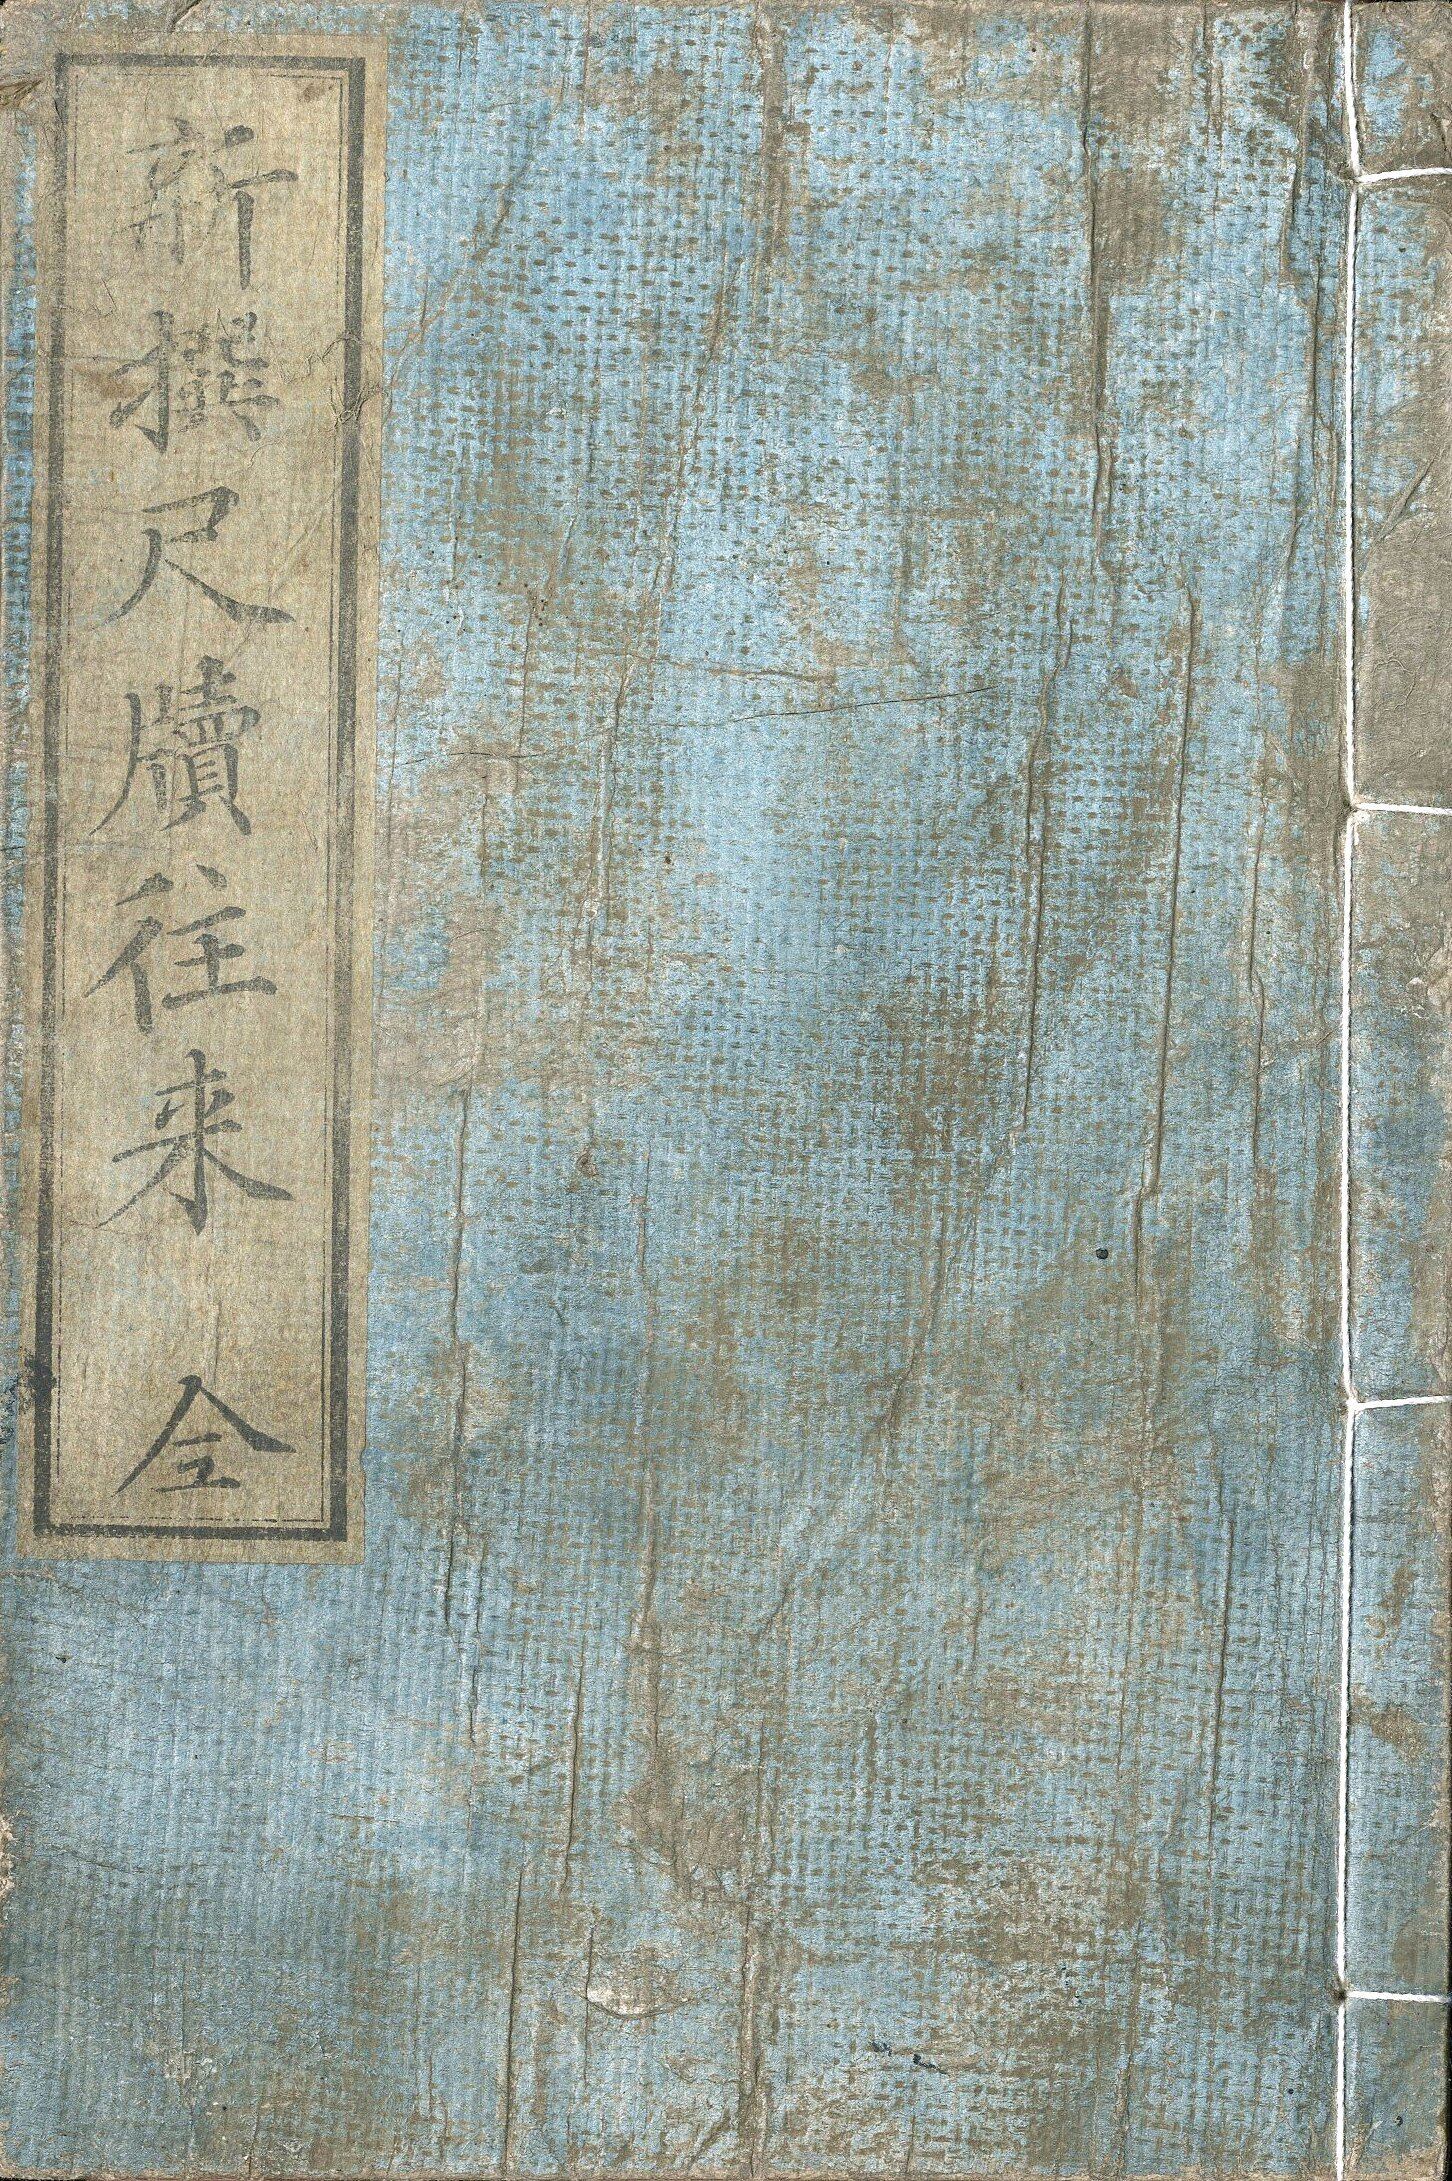 新撰尺牘往来 全